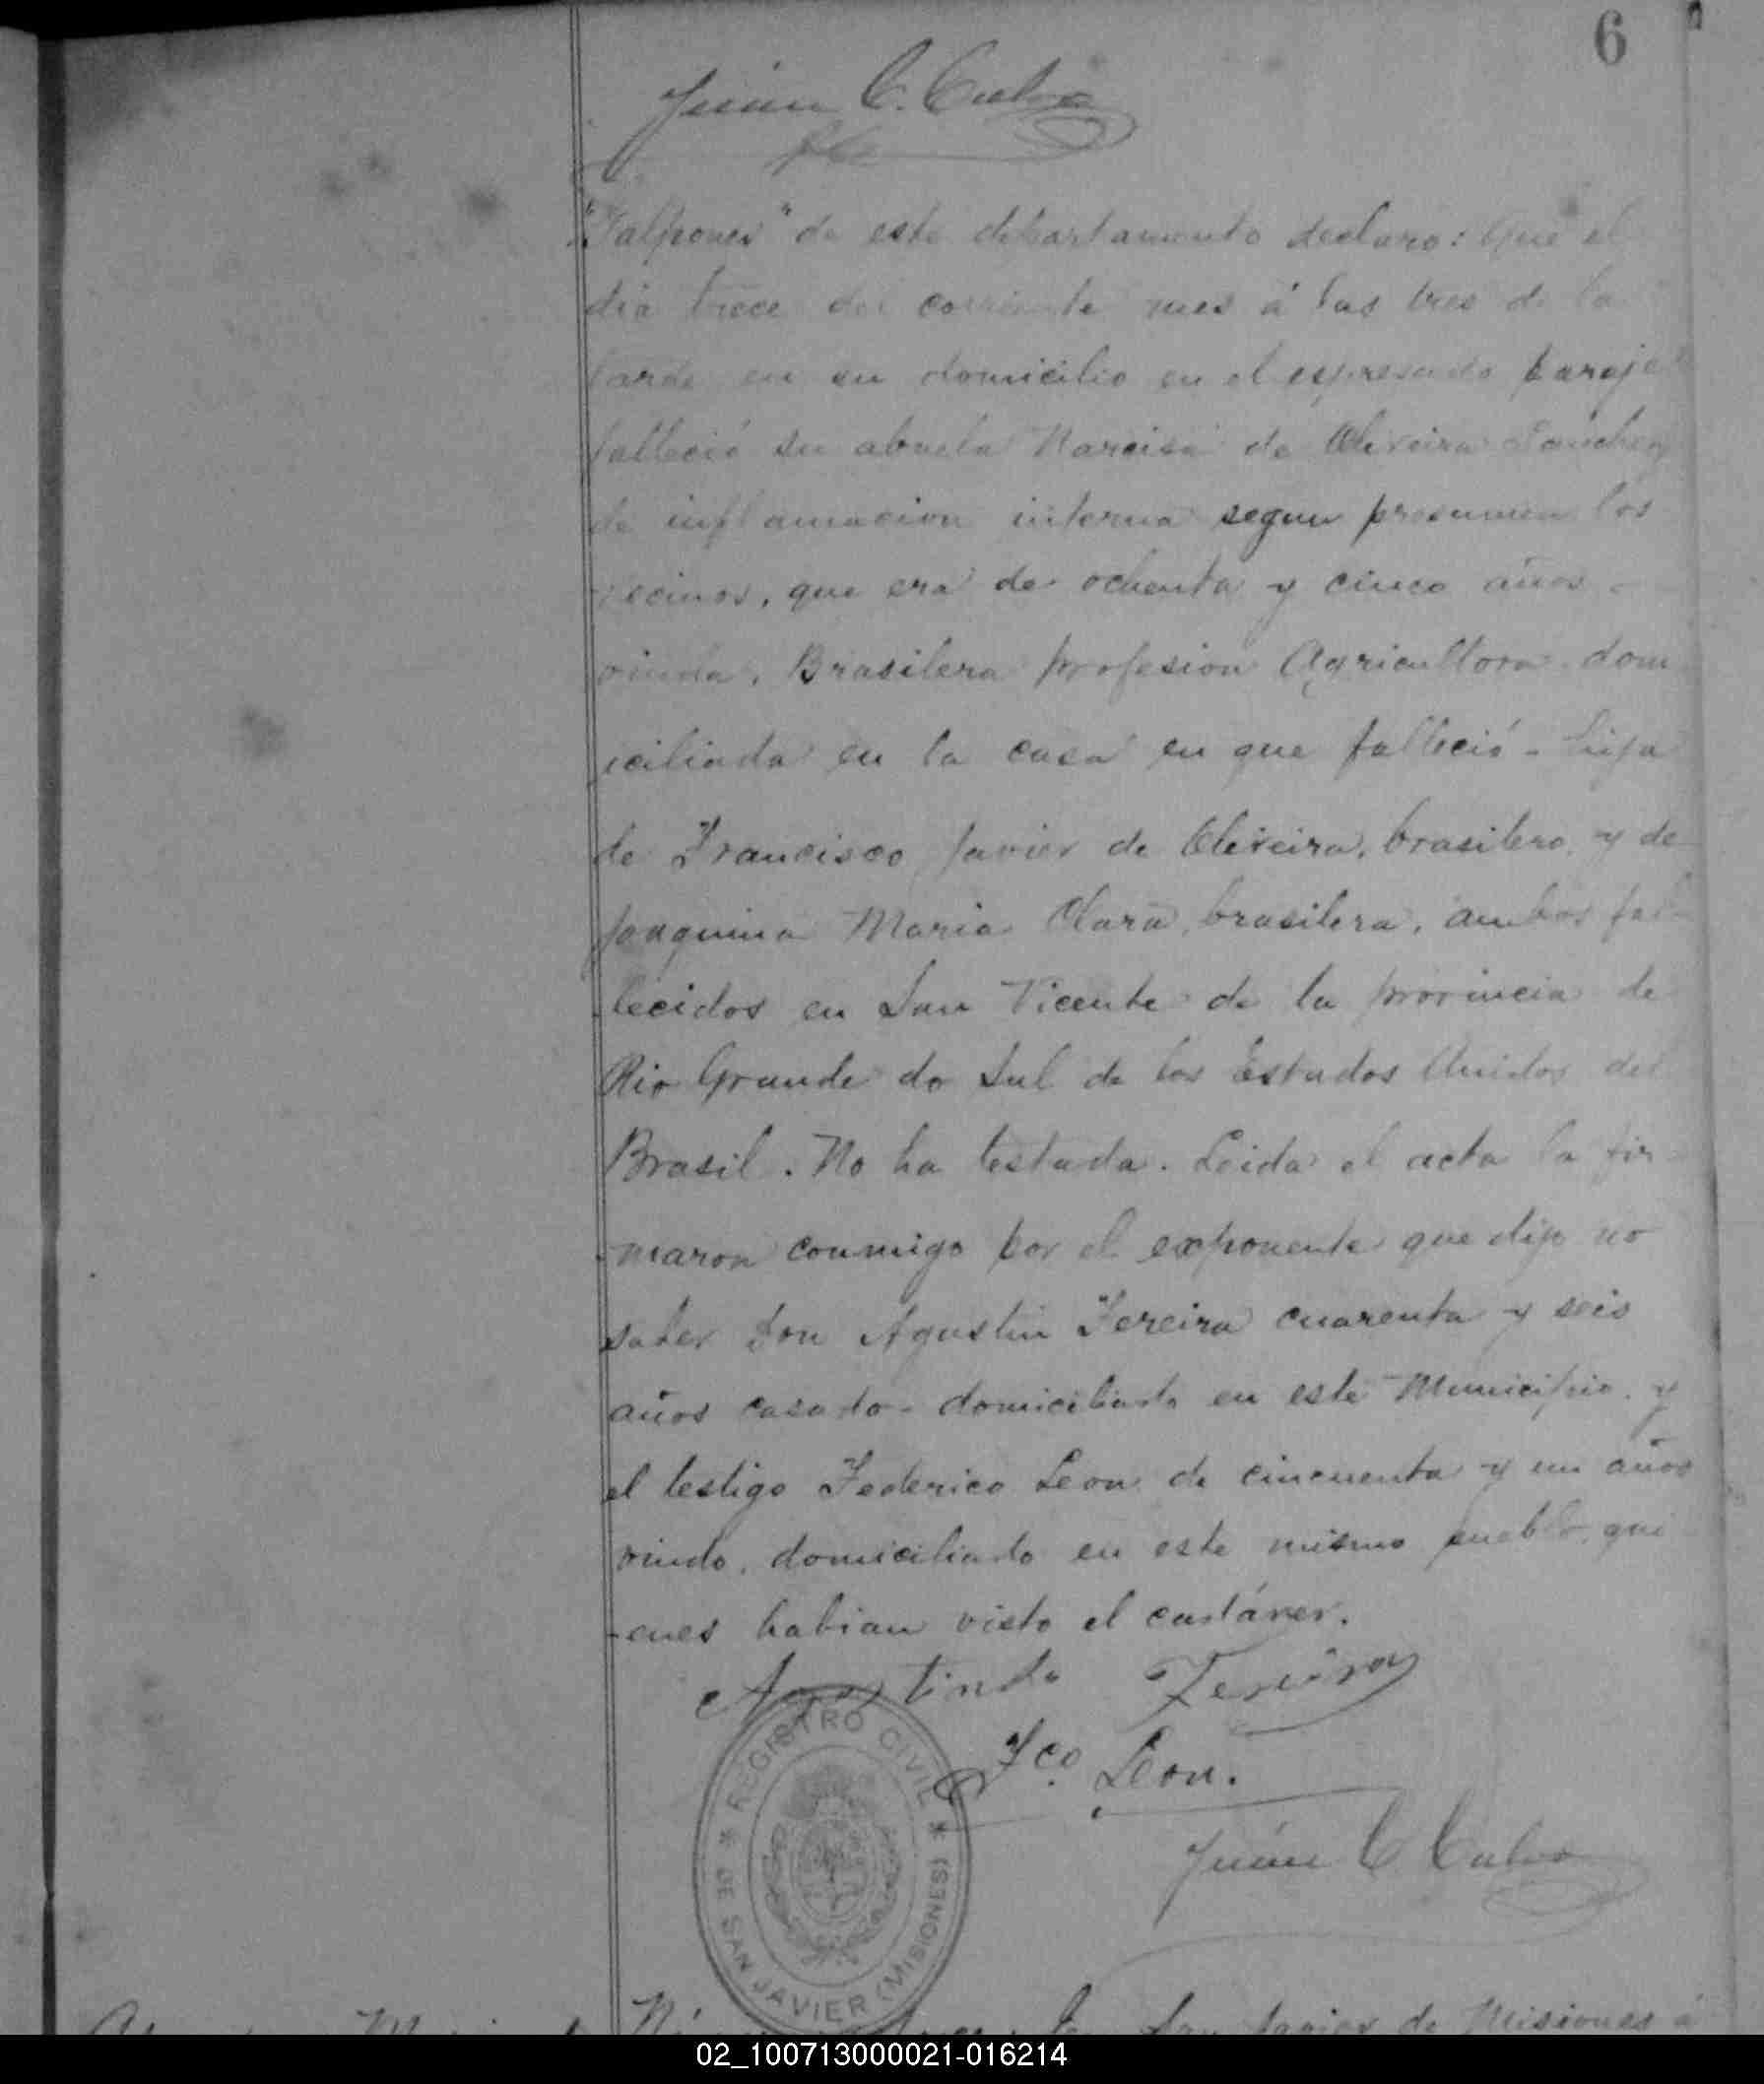 6
Juan C. Cubo
"Galpones" de este departamento declaro: Que el
dia trece del corriente mes á las tres de la
tarde en su domicilio en el espresado paraje
falleció su abuela Narcisa de Oliveira Sanchez
de inflamacion interna segun presumen los
vecinos, que era de ochenta y cinco años
viuda, Brasilera profesion Agricultora dom
iciliada en la casa en que falleció - hija
de Francisco Javier de Oliveira, brasilero y de
Joaquina Maria Clara, brasilera, ambos fal-
lecidos en San Vicente de la provincia de
Rio Grande do Sul de los Estados Unidos del
Brasil. No ha testado. Leida el acta la fir-
-maron conmigo por el exponente que dijo no
saber Don Agustin Fereira cuarenta y seis
años casado - domiciliado en este Municipio y
el testigo Federico Leon de cincuenta y un años
viudo, domiciliado en este mismo pueblo, qui
-enes habian visto el cadáver.
Agostindo Fereira
Fco. Leon.
Juan C Cubo
REGISTRO CIVIL
* DE SAN JAVIER (MISIONES) *
San Javier de Misiones á
02_100713000021-016214